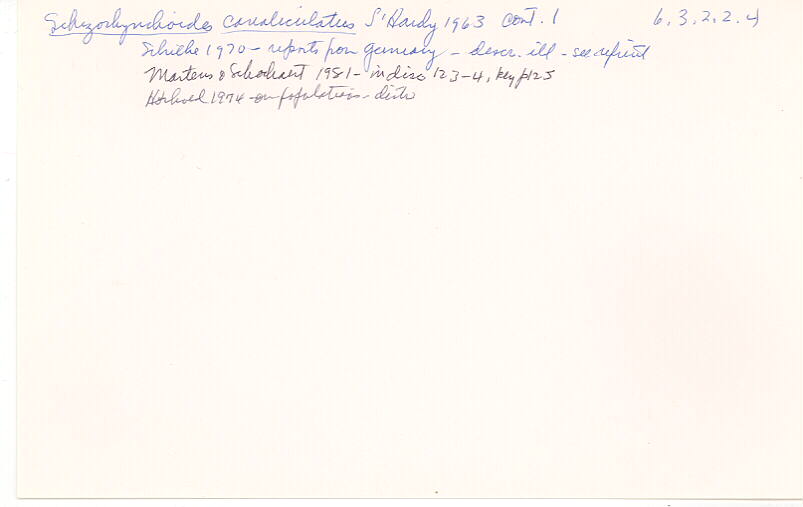 Schizorhynchoides canaliculatus L'Hardy 1963 cont. 1 6.3.2.2.4
Schilke 1970 - reports from Germany - descr. ill - see reprint
Martens & Schockaert 1981 - in disc 123-4, key p125
1974 - on populations - distr